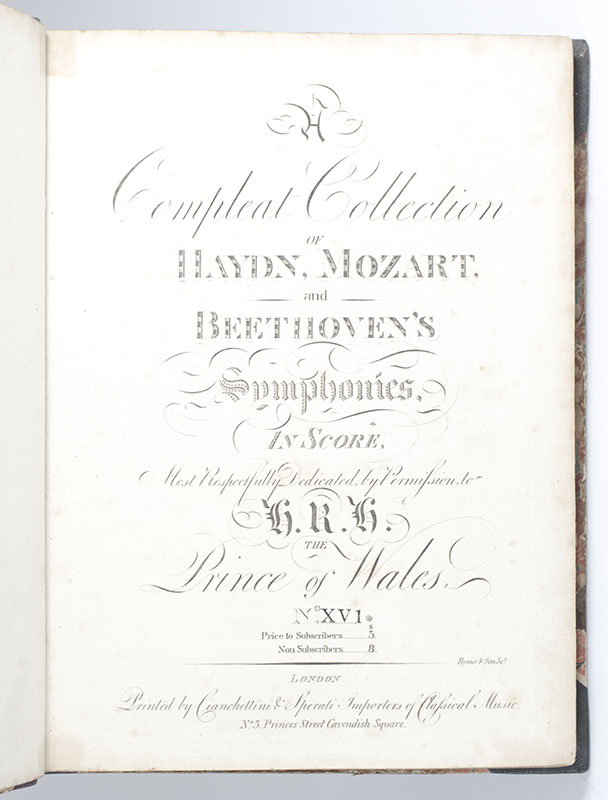 A
Compleat Collection
OF
HAYDN, MOZART,
and
BEETHOVEN'S
Symphonies,
IN SCORE,
Most Respectfully Dedicated, by Permiſsion, to
H. R. H.
THE
Prince of Wales.
No. XVI
s
Price to Subscribers 5.
Non Subscribers 8.
LONDON
Printed by Cianchettini & Sperati Importers of Claſsical Music.
No. 5. Princes Street Cavendish Square.